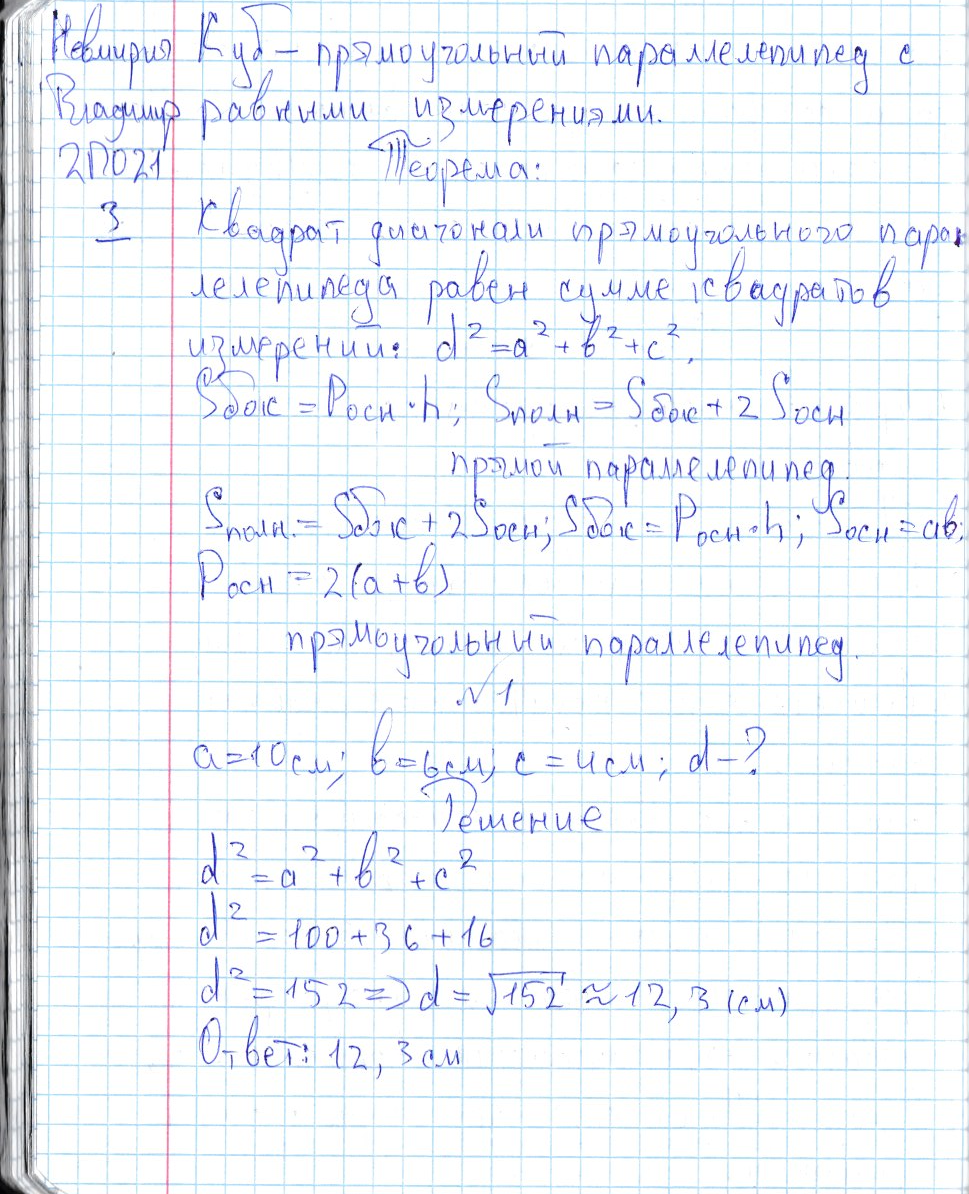 Невмирия
Владимир
2ПО21
3
Куб – прямоугольный параллелепипед с
равными измерениями.
Теорема:
Квадрат диагонали прямоугольного парал
лелепипеда равен сумме квадратов
измерений: d² = a² + b² + c².
Sбок = Pосн · h; Sполн = Sбок + 2 Sосн
прямой параллелепипед.
Sполн. = Sбок + 2Sосн; Sбок = Pосн · h; Sосн = ab;
Pосн = 2(a + b)
прямоугольный параллелепипед.
№1
a = 10 см; b = 6 см; c = 4 см; d – ?
Решение
d² = a² + b² + c²
d² = 100 + 36 + 16
d² = 152 => d = √152 ≈ 12,3 (см)
Ответ: 12,3 см